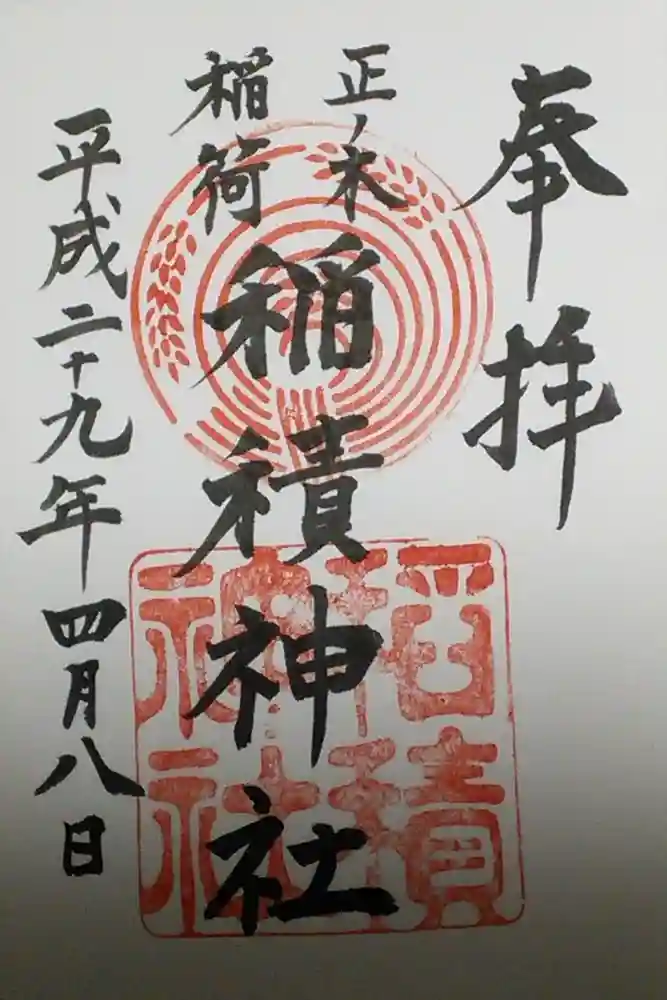 奉拝
正ノ木
稲荷
稲積神社
平成二十九年四月八日
稲積
神社